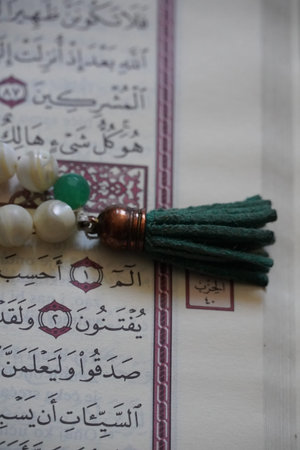 فَلَا تَكُونَنَّ ظَهِيرًا
ٱللَّهِ بَعْدَ إِذْ أُنزِلَتْ
ٱلْمُشْرِكِينَ ٨٧
هُوَ كُلُّ شَيْءٍ هَالِكٌ
الٓمٓ ١ أَحَسِبَ
يُفْتَنُونَ ٢ وَلَقَدْ
صَدَقُوا۟ وَلَيَعْلَمَنَّ
ٱلسَّيِّـَٔاتِ أَن يَسْبِ
الحزب
٤٠